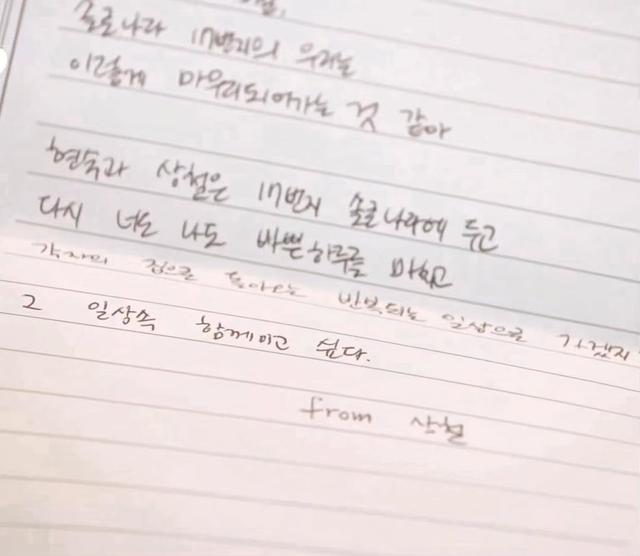 솔로나라 17번지의 우리는
이렇게 마무리되어가는 것 같아
현숙과 상철은 17번지 솔로나라에 두고
다시 너도 나도 바쁜하루를 마치고
각자의 집으로 돌아오는 반복되는 일상으로 가겠지
그 일상속 함께이고 싶다.
from 상철